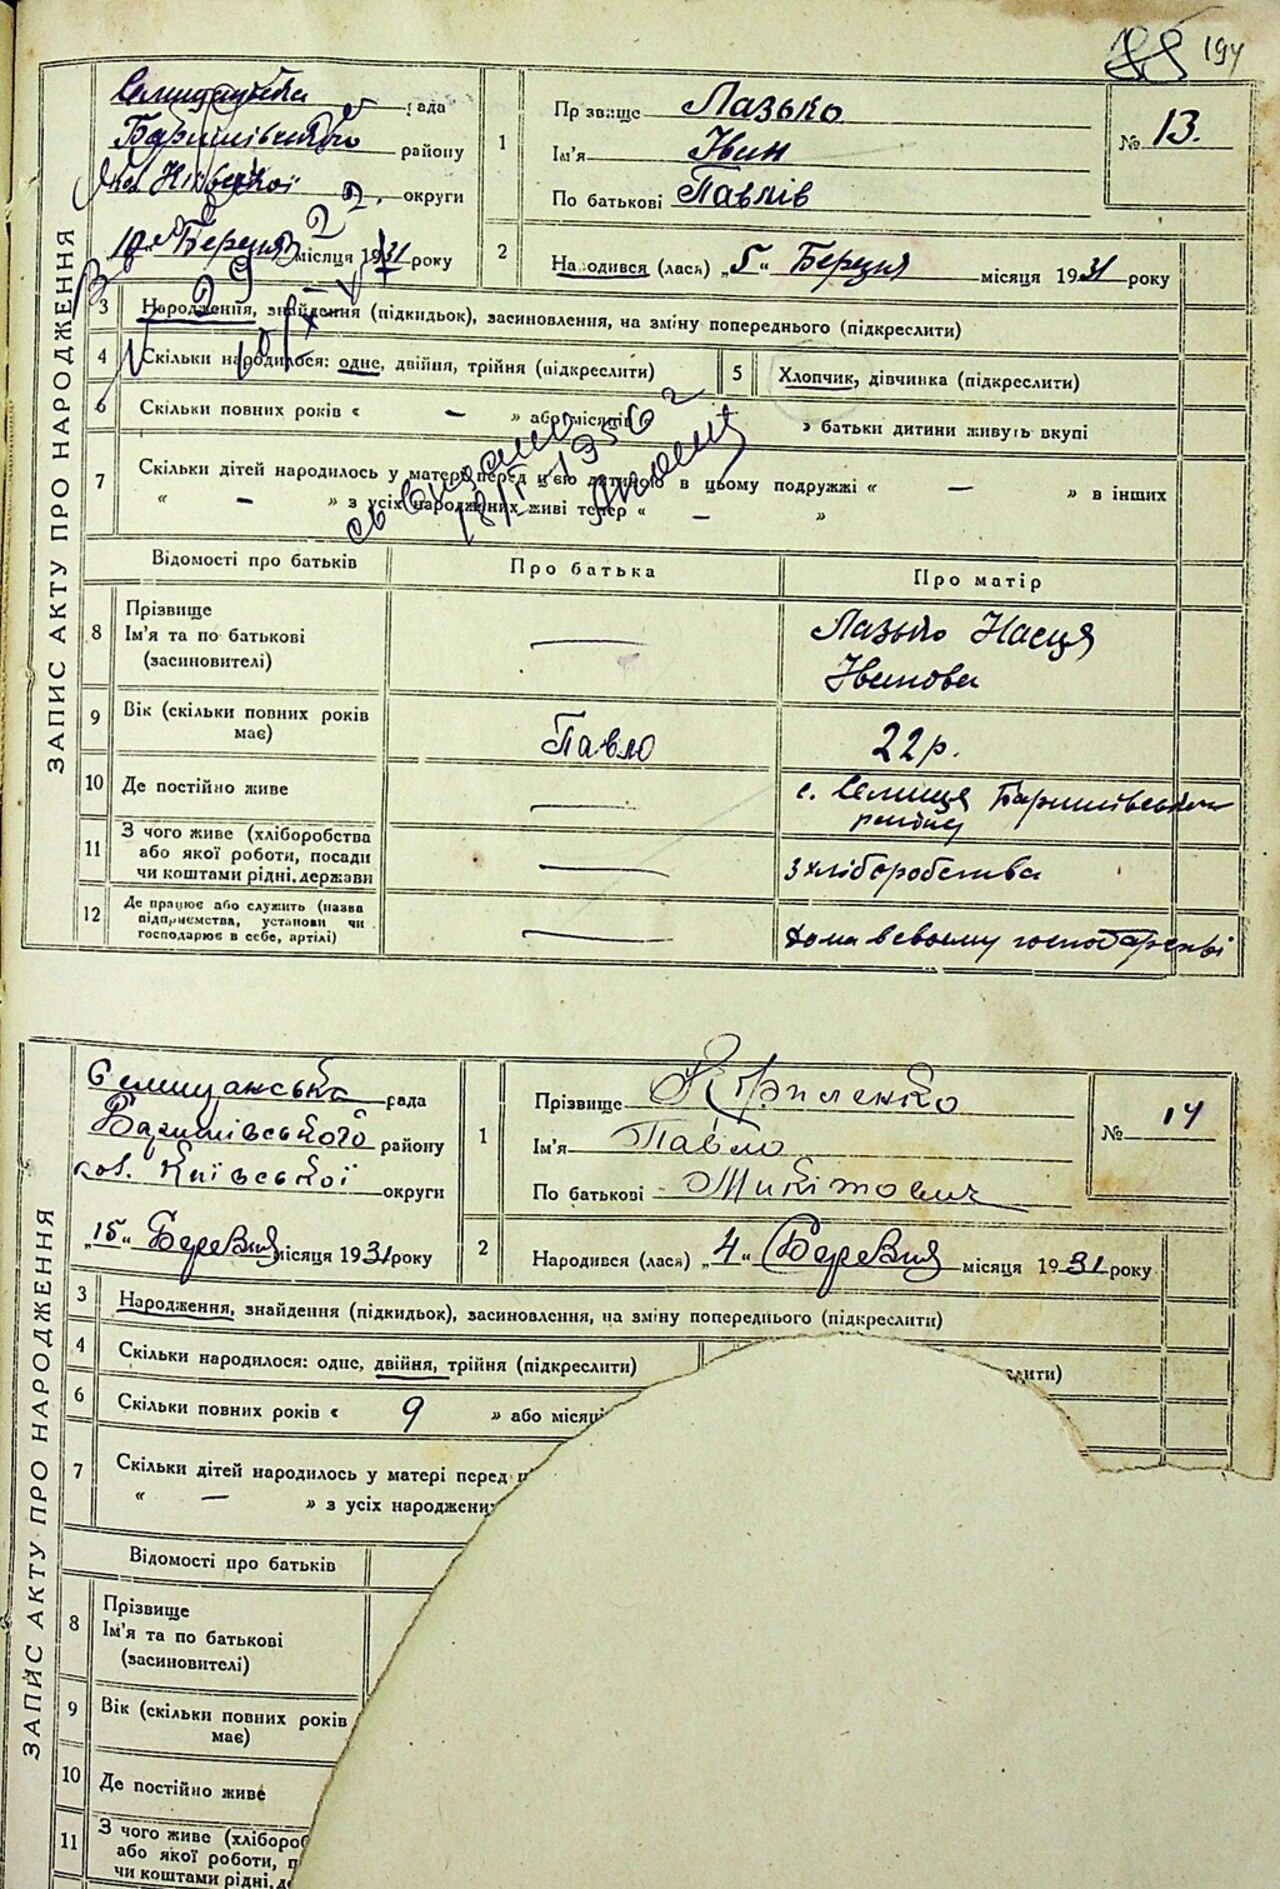 194
ЗАПИС АКТУ ПРО НАРОДЖЕННЯ
рада
Баришівського району
округи
Березня місяця 1931 року
1
Прізвище Лазько
Ім'я Іван
По батькові Павлів
№ 13.
2
Народився (лася) „5“ Березня місяця 1931 року
3 Народження, знайдення (підкидьок), засиновлення, на зміну попереднього (підкреслити)
4 Скільки народилося: одне, двійня, трійня (підкреслити)
5 Хлопчик, дівчинка (підкреслити)
6 Скільки повних років « — » або місяців » батьки дитини живуть вкупі
7 Скільки дітей народилось у матері перед цією дитиною в цьому подружжі « — » в інших
« — » з усіх народжених живі тепер « — »
1956 г
Відомості про батьків
Про батька
Про матір
8 Прізвище
Ім'я та по батькові
(засиновителі)
—
Лазько Насця
Іванова
9 Вік (скільки повних років
має)
Павло
22 р.
10 Де постійно живе
—
с. Селище Баришівського
району
11 З чого живе (хліборобства
або якої роботи, посади
чи коштами рідні, держави
—
з хліборобства
12 Де працює або служить (назва
підприємства, установи чи
господарює в себе, артілі)
—
дома в своєму господарстві
ЗАПИС АКТУ ПРО НАРОДЖЕННЯ
Селищанська рада
Баришівського району
Київської округи
„15“ Березня місяця 1931 року
1
Прізвище Кириленко
Ім'я Павло
По батькові Микітович
№ 14
2
Народився (лася) „4“ Березня місяця 1931 року
3 Народження, знайдення (підкидьок), засиновлення, на зміну попереднього (підкреслити)
4 Скільки народилося: одне, двійня, трійня (підкреслити)
слити)
6 Скільки повних років « 9 » або місяці
7 Скільки дітей народилось у матері перед ц
« — » з усіх народжених
Відомості про батьків
8 Прізвище
Ім'я та по батькові
(засиновителі)
9 Вік (скільки повних років
має)
10 Де постійно живе
11 З чого живе (хлібороб
або якої роботи, п
чи коштами рідні, де